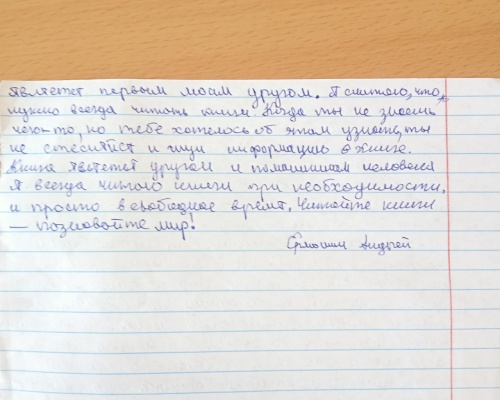 является первым моим другом. Я считаю, что
нужно всегда читать книги. Когда ты не знаешь
чего-то, но тебе хотелось об этом узнать, ты
не стесняйся и ищи информацию в книге.
Книга является другом и помощником человека
Я всегда читаю книги при необходимости,
и просто в свободное время. Читайте книги
— познавайте мир!
Андрей